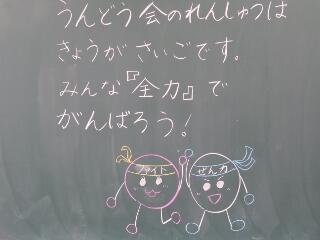 うんどう会のれんしゅうは
きょうがさいごです。
みんな『全力』で
がんばろう!
ファイト
ぜん力